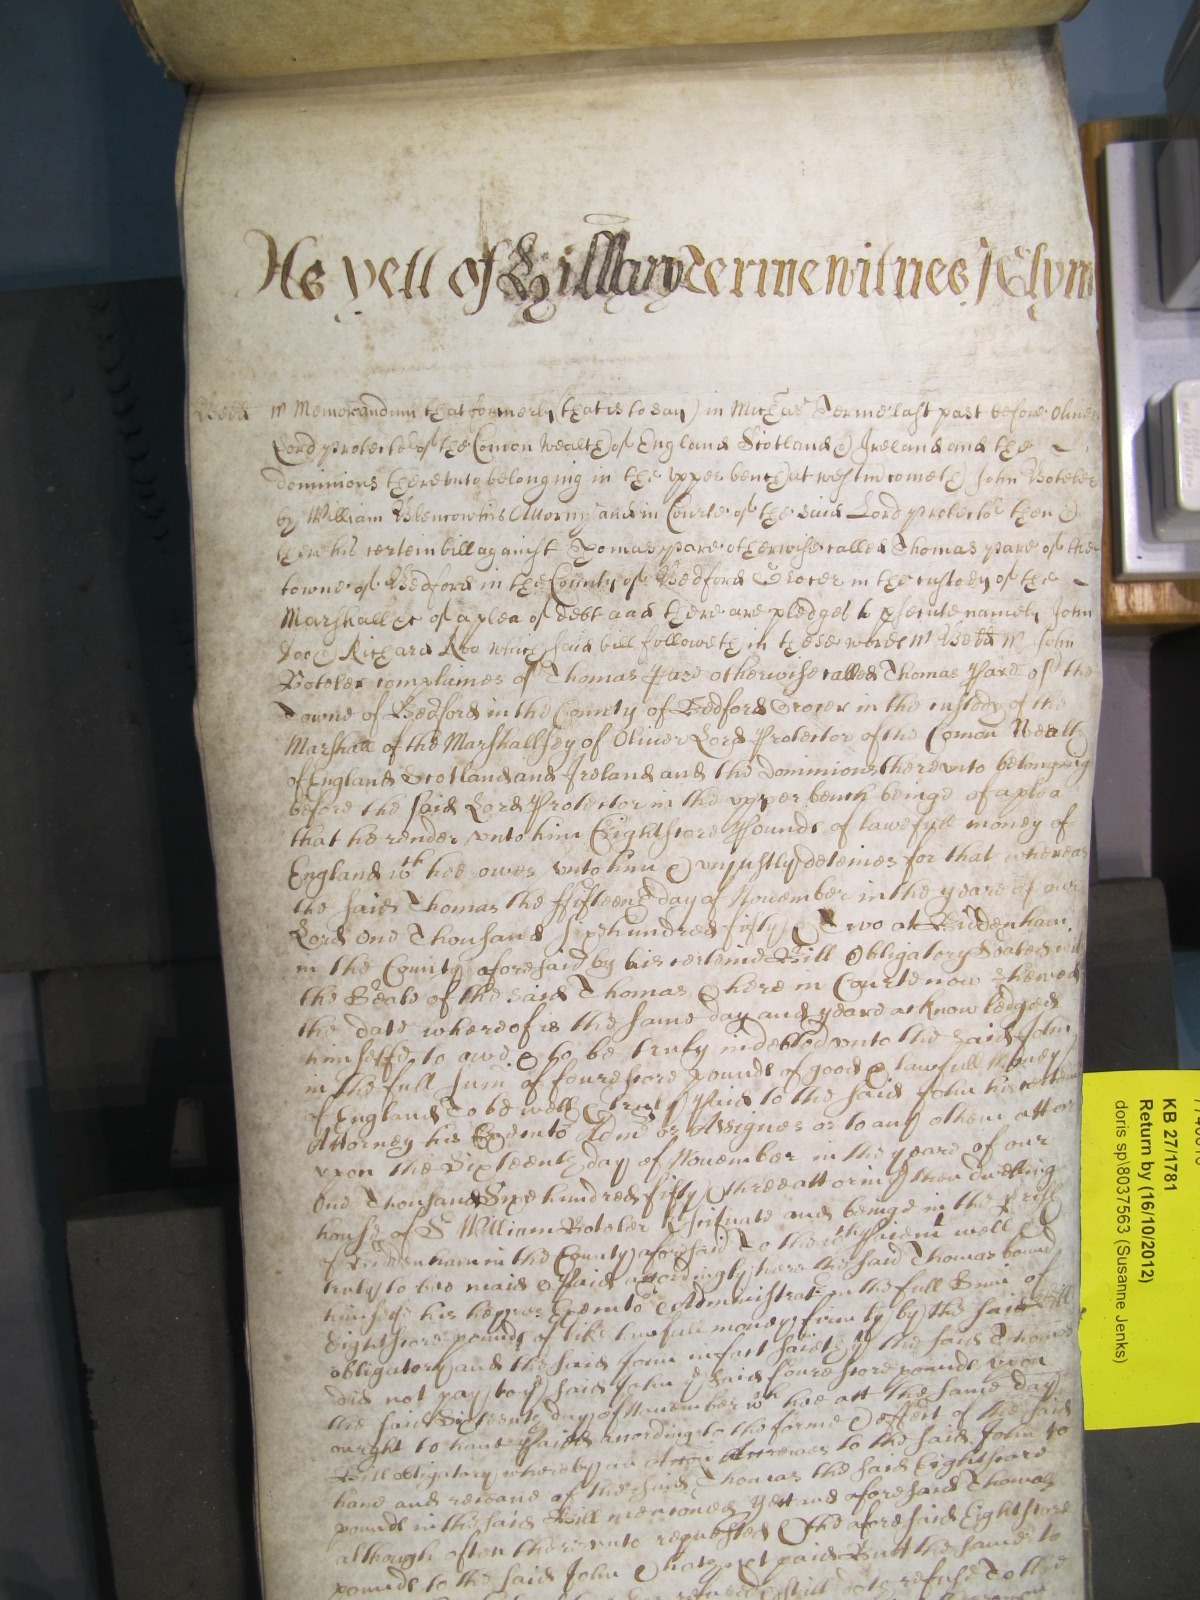 As yett of Hillary Terme witnes
Bedd
Memorandum that formerly that is to say in Michas Terme last past before Oliver
Lord protector of the Comon wealth of England Scotland & Ireland and the
dominions thereunto belonging in the upper bench at westm cometh John Boteler
by William Blencow his Attorny and in Courte of the said Lord protector then &
there his certein bill against Thomas pare otherwise called Thomas pare of the
towne of Bedford in the County of Bedford Grocer in the custody of the
Marshall &c of a plea of debt and there are pledges to psecute namely John
Doe & Richard Roo which said bill followeth in these words Bedd John
Boteler complaines of Thomas Pare otherwise called Thomas Pare of the
Towne of Bedford in the County of Bedford Grocer in the custody of the
Marshall of the Marshallsey of Oliver Lord Protector of the Comon Wealth
of England Scotland and Ireland and the dominions thereunto belonging
before the said Lord Protector in the upper bench beinge of a plea
that he render unto him Eightscore Pounds of lawefull money of
England wch hee owes unto him & unjustly deteines for that whereas
the said Thomas the fifteenth day of November in the yeare of our
Lord One Thousand Six hundred fifty & Two at Biddenham
in the County aforesaid by his certeine Bill Obligatory Sealed
the Seale of the said Thomas & here in Courte now shewed
the date whereof is the same day and yeare acknowledged
himselfe to owe & to be truly indebted unto the said John
in the full sum of fourescore pounds of good & lawfull Money
of England To be well & truly Paid to the said John his certein
Attorney his Executo Admr or Assignes or to any of them att or
upon the Sixteenth day of November in the yeare of our
One Thousand Sixe hundred fifty & three att or in the then dwelling
house of Sr William Boteler Kt scituate and beinge in the prish
of Biddenham in the County aforesaid To the wch paiemt well &
truly to bee made & paid accordingly there the said Thomas bound
himselfe his heyres Executo & Administrat in the full Sum of
Eightscore pounds of like lawfull money firmly by the said Bill
obligatory and the said John in fact saieth yt the said Thomas
did not pay to ye said John ye said fourescore pounds upon
the said Sixteenth day of November wch hee att the same day
ought to have Paied according to the forme & effect of the said
Bill obligatory whereby an accon Accrewes to the said John to
have and receave of the said Thomas the said Eightscore
pounds in the said Bill mencioned Yett the aforesaid Thomas
although often thereunto requested the aforesaid Eightscore
pounds to the said John hath not paid But the same to
refused & still doth refuse To the
KB 27/1781
Return by (16/10/2012)
doris sp\8037563 (Susanne Jenks)